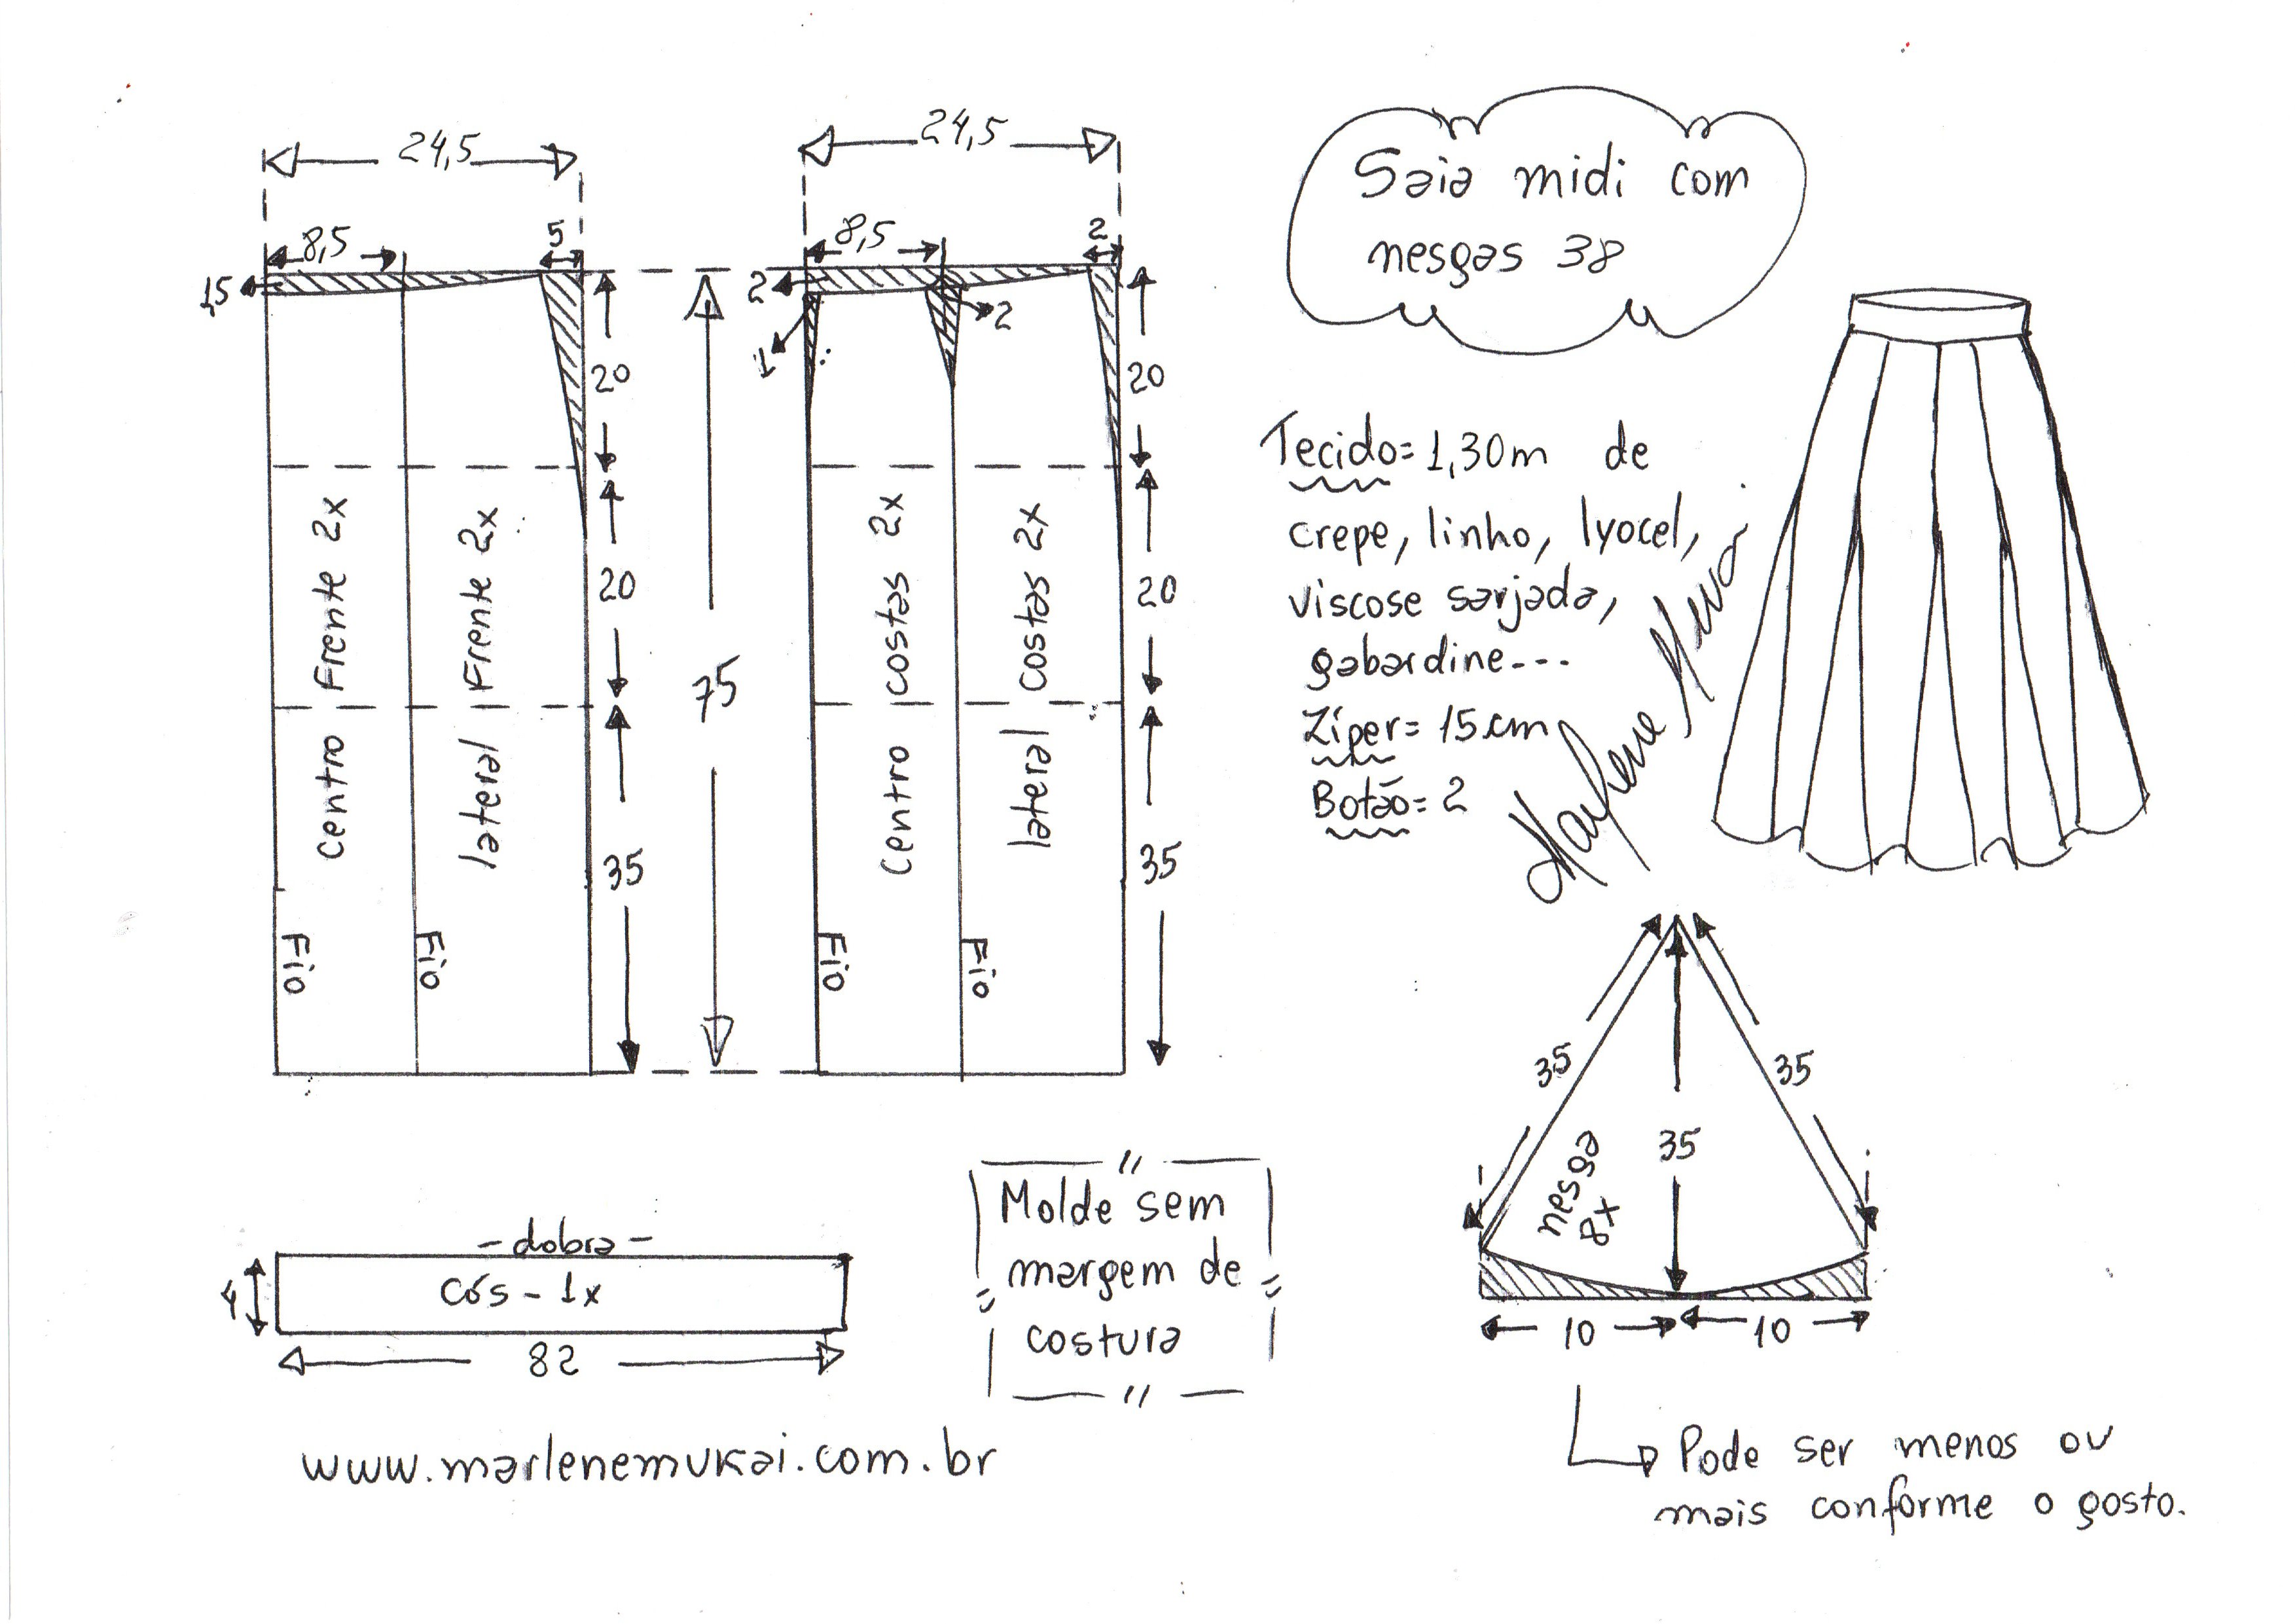 24,5
8,5
5
1,5
20
20
35
Centro Frente 2x
lateral Frente 2x
Fio
Fio
75
24,5
8,5
2
2
2
1
20
20
35
Centro costas 2x
lateral costas 2x
Fio
Fio
Saia midi com
nesgas 38
Tecido= 1,30m de
crepe, linho, lyocel,
viscose sarjada,
gabardine---
Zíper= 15cm
Botão= 2
Marlene Mukai
35
35
35
nesga
8x
10
10
Pode ser menos ou
mais conforme o gosto.
- dobra -
Cós - 1x
4
82
Molde sem
margem de
costura
www.marlenemukai.com.br